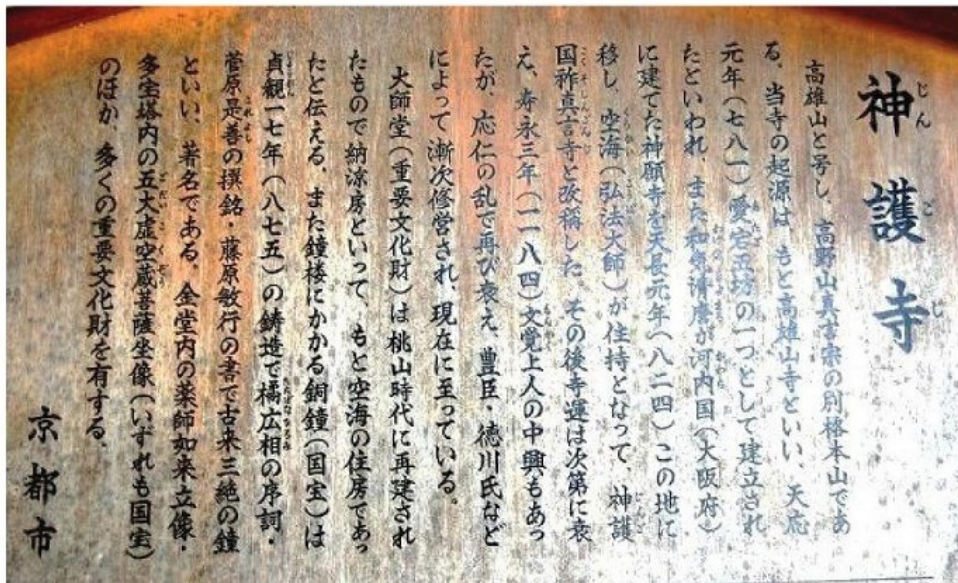 神護寺
高雄山と号し、高野山真言宗の別格本山であ
る。当寺の起源は、もと高雄山寺といい、天応
元年（七八一）愛宕五坊の一つとして建立され
たといわれ、また和気清麿が河内国（大阪府）
に建てた神願寺を天長元年（八二四）この地に
移し、空海（弘法大師）が住持となって、神護
国祚真言寺と改称した。その後寺運は次第に衰
え、寿永三年（一一八四）文覚上人の中興もあっ
たが、応仁の乱で再び衰え、豊臣・徳川氏など
によって漸次修営され、現在に至っている。
大師堂（重要文化財）は桃山時代に再建され
たもので納涼房といって、もと空海の住房であっ
たと伝える。また鐘楼にかかる銅鐘（国宝）は
貞観一七年（八七五）の鋳造で橘広相の序詞・
菅原是善の撰銘・藤原敏行の書で古来三絶の鐘
といい、著名である。金堂内の薬師如来立像・
多宝塔内の五大虚空蔵菩薩坐像（いずれも国宝）
のほか、多くの重要文化財を有する。
京都市